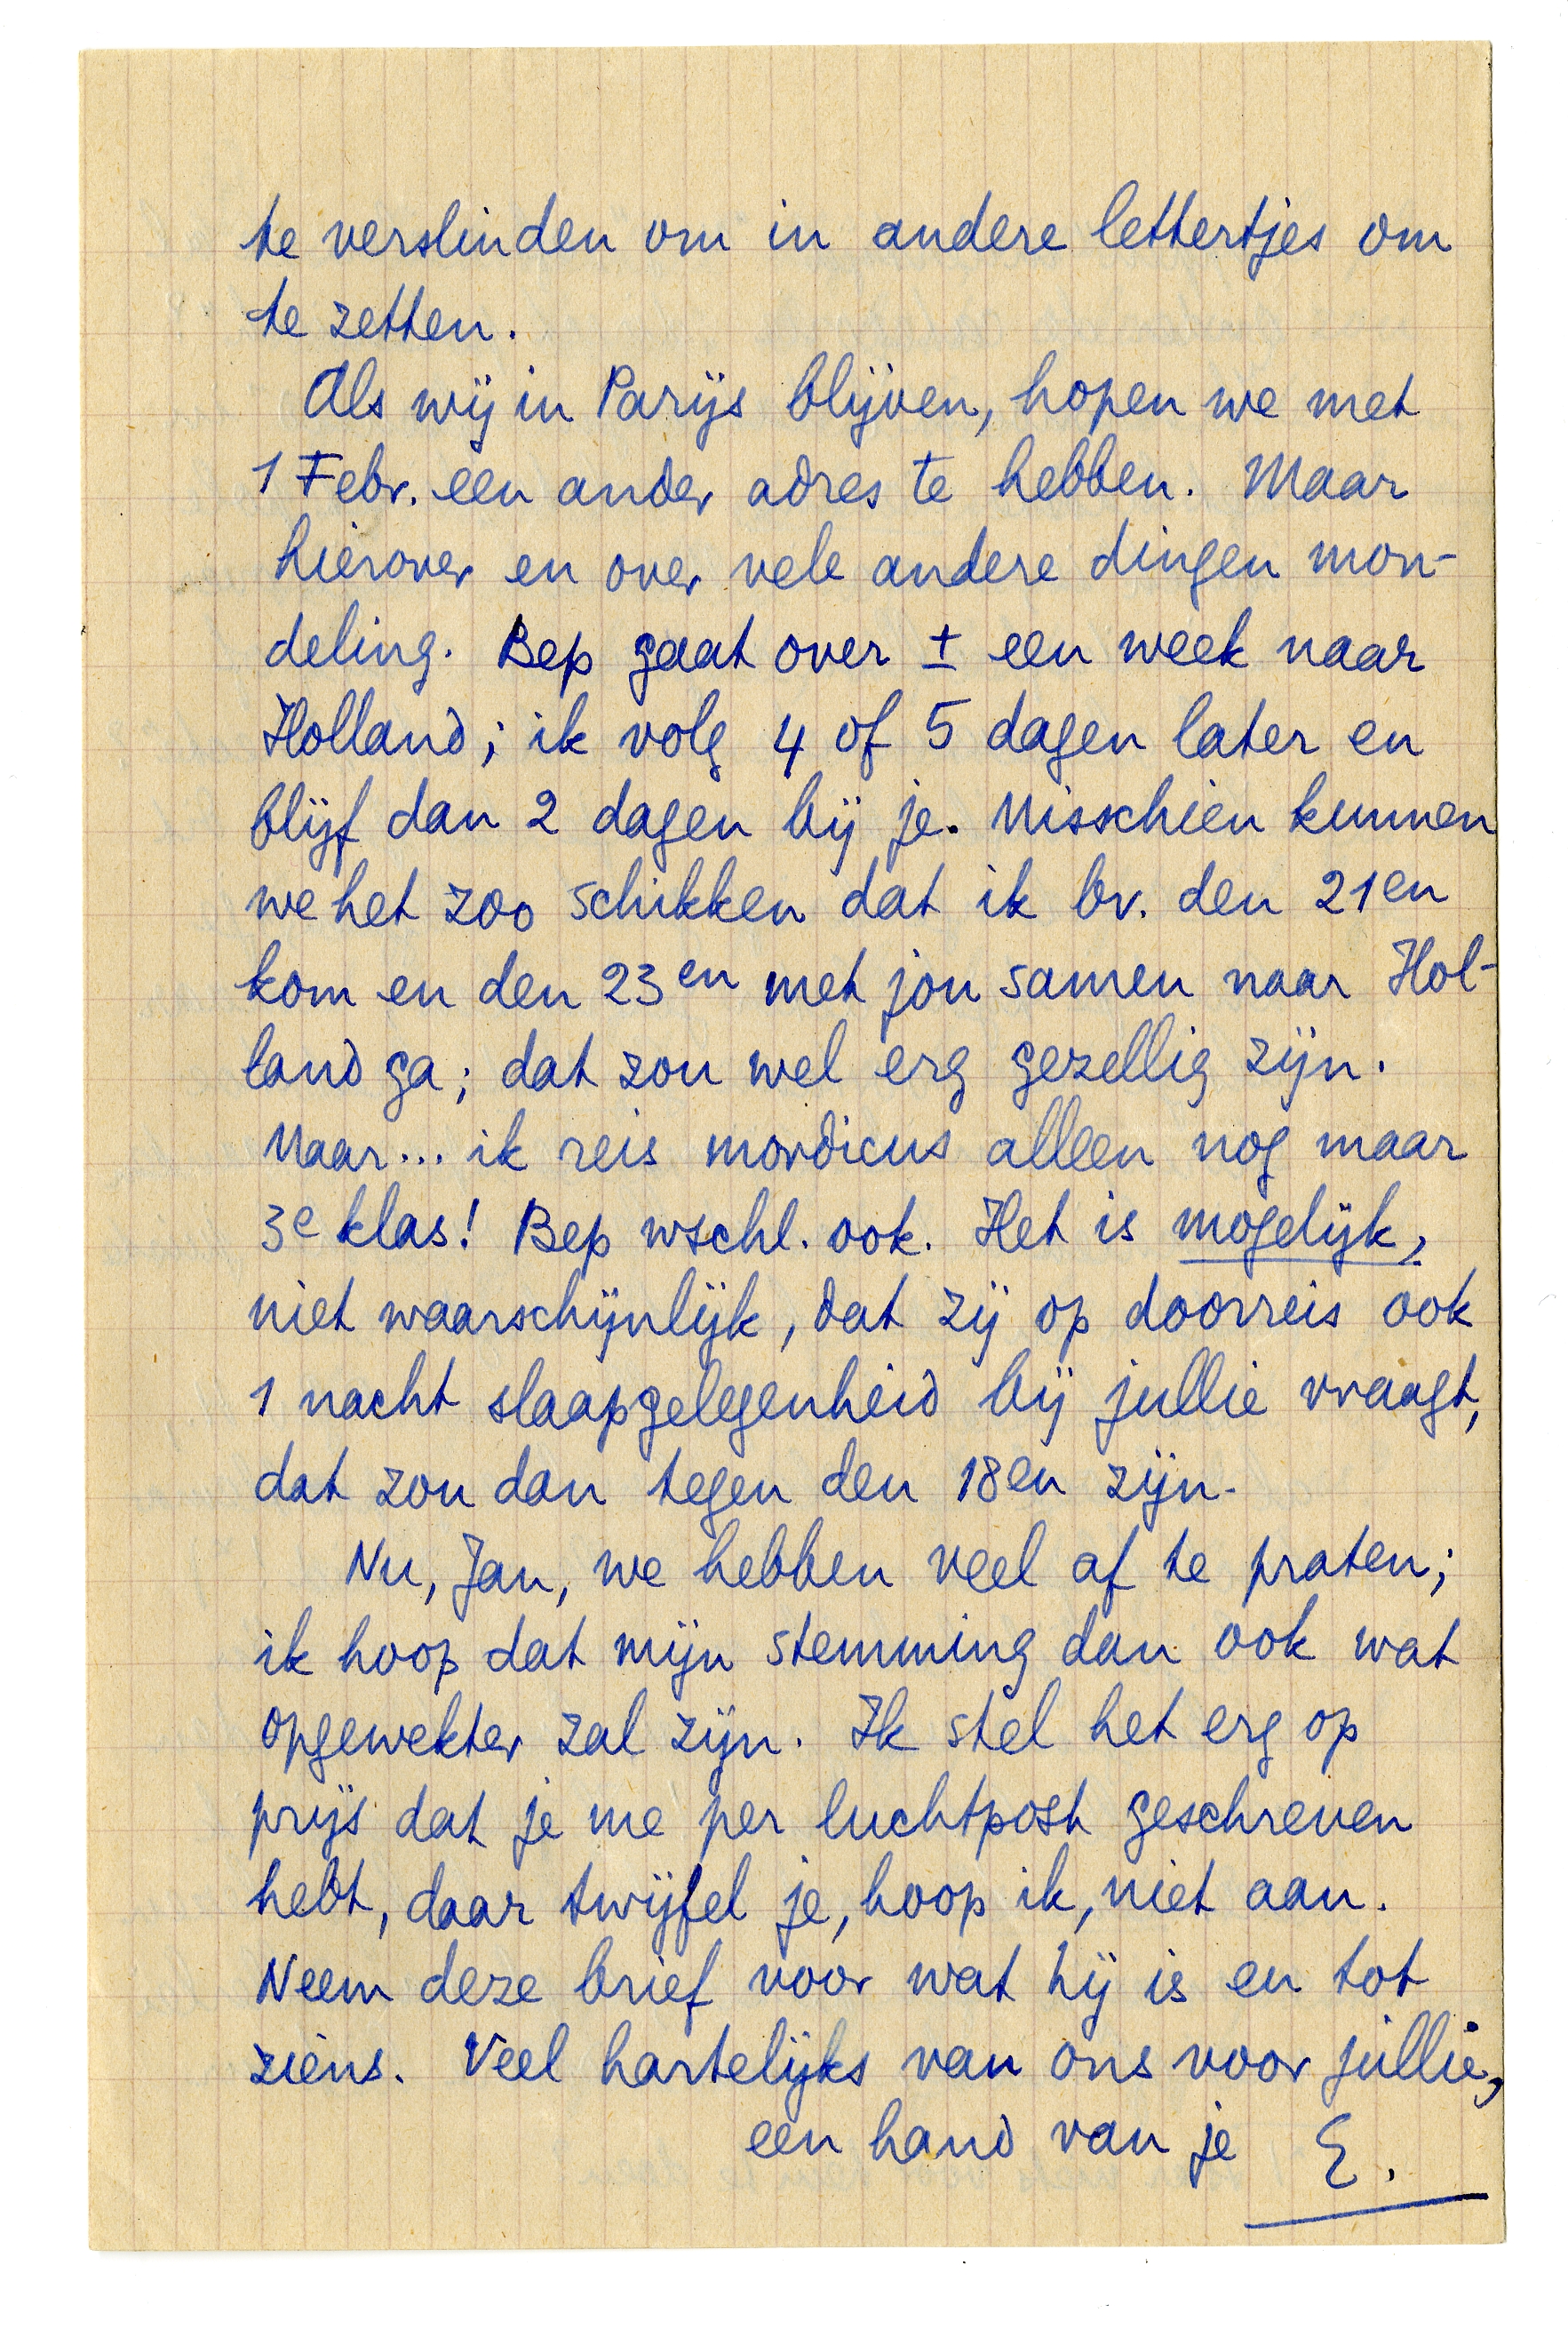 te verslinden om in andere lettertjes om
te zetten.
Als wij in Parijs blijven, hopen we met
1 Febr. een ander adres te hebben. Maar
hierover en over vele andere dingen mon-
deling. Bep gaat over ± een week naar
Holland; ik volg 4 of 5 dagen later en
blijf dan 2 dagen bij je. Misschien kunnen
we het zoo schikken dat ik bv. den 21en
kom en den 23en met jou samen naar Hol-
land ga; dat zou wel erg gezellig zijn.
Maar... ik reis mordicus alleen nog maar
3e klas! Bep wschl. ook. Het is mogelijk,
niet waarschijnlijk, dat zij op doorreis ook
1 nacht slaapgelegenheid bij jullie vraagt,
dat zou dan tegen den 18en zijn.
Nu, Jan, we hebben veel af te praten;
ik hoop dat mijn stemming dan ook wat
opgewekter zal zijn. Ik stel het erg op
prijs dat je me per luchtpost geschreven
hebt, daar twijfel je, hoop ik, niet aan.
Neem deze brief voor wat hij is en tot
ziens. Veel hartelijks van ons voor jullie,
een hand van je E.